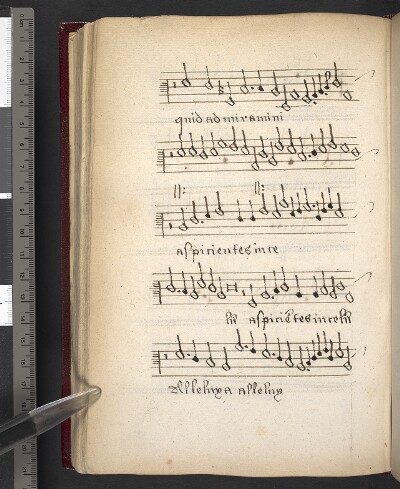 quid admiramini
||: ||:
aspicientes in ce
lū aspiciētes in celū
Alleluya alleluy